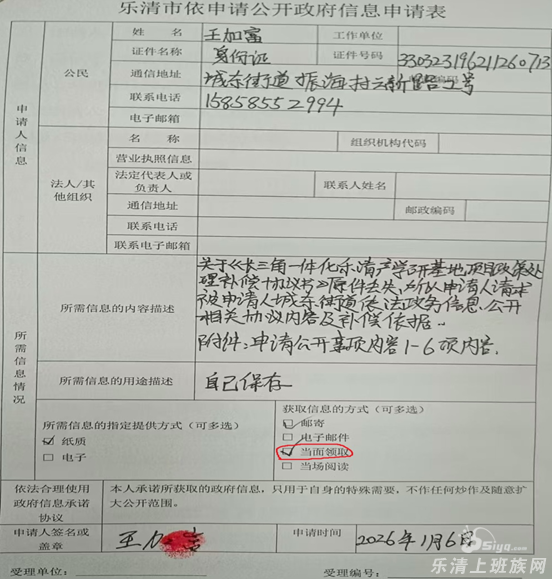 乐清市依申请公开政府信息申请表
申请人信息
公民
姓名 王加富 工作单位
证件名称 身份证 证件号码 330323196211260713
通信地址 城东街道振海村云新路2号
联系电话 15858552994
电子邮箱
法人/其他组织
名称 组织机构代码
营业执照信息
法定代表人或负责人 联系人姓名
通信地址 邮政编码
联系电话
联系电子邮箱
所需信息情况
所需信息的内容描述
关于《长三角一体化乐清产学研基地项目政策处
理补偿协议书》原件丢失,所以申请人请求
被申请人城东街道依法政务信息公开
相关协议内容及补偿依据..
附件:申请公开事项内容1-6项内容.
所需信息的用途描述 自己保存
所需信息的指定提供方式(可多选)
☑ 纸质
□ 电子
获取信息的方式(可多选)
☑ 邮寄
□ 电子邮件
☑ 当面领取
□ 当场阅读
依法合理使用政府信息承诺协议
本人承诺所获取的政府信息,只用于自身的特殊需要,不作任何炒作及随意扩
大公开范围。
申请人签名或盖章 王加 申请时间 2026年1月6日
受理单位: 受理编号:
6Siya.com
乐清上班族网